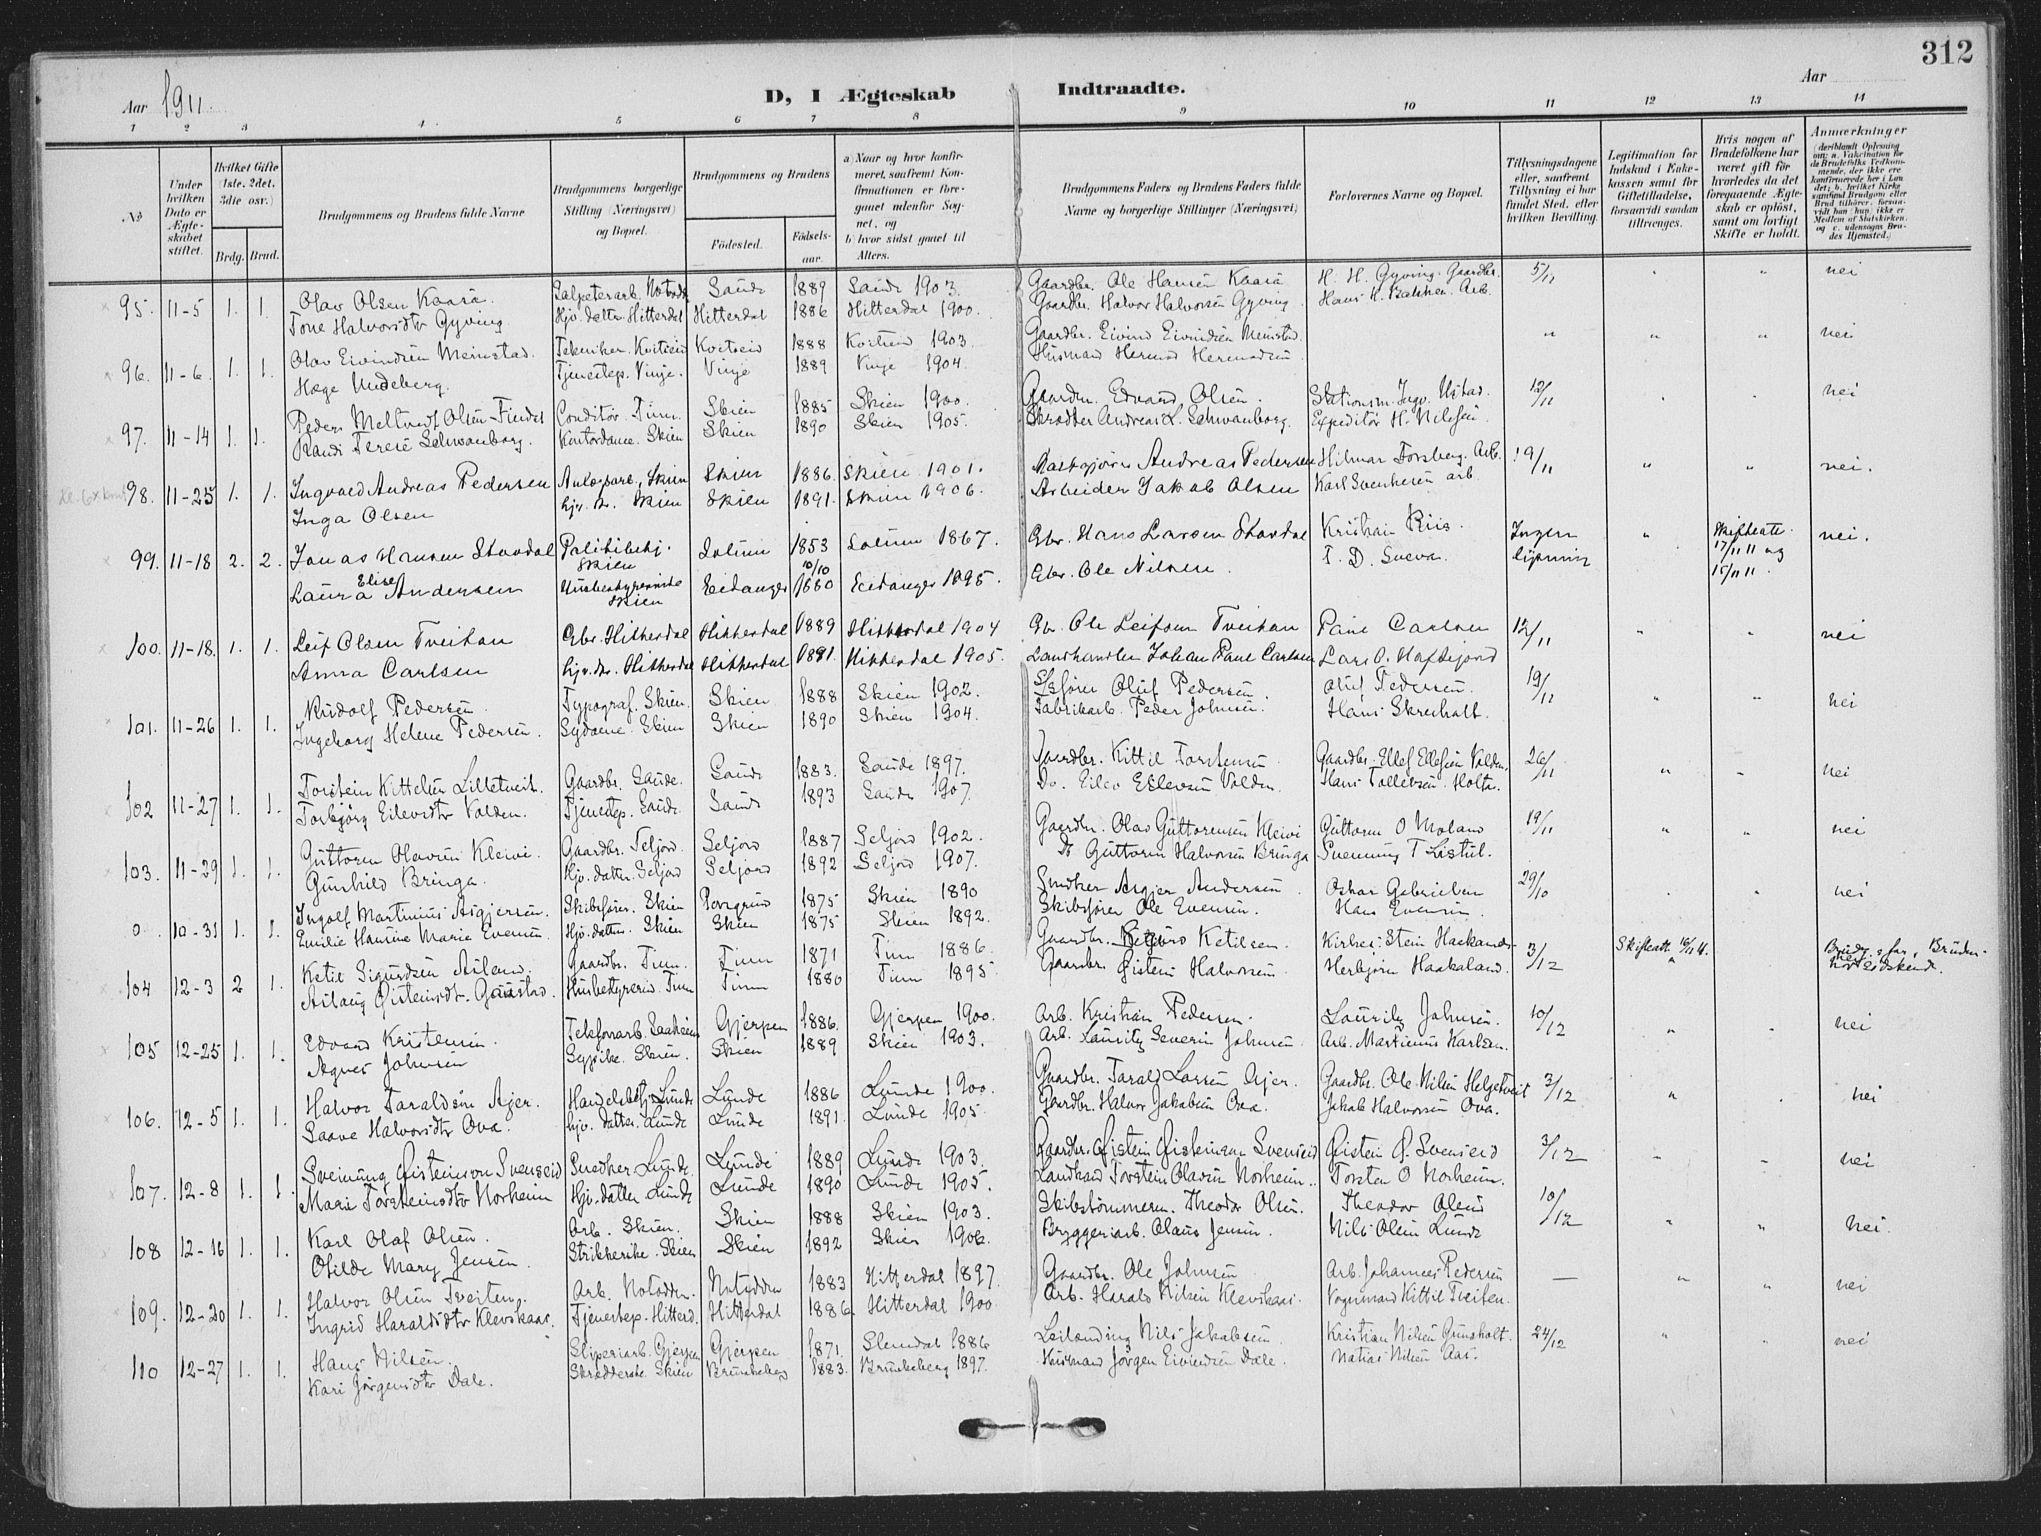 312
Aar 1911. D, I Ægteskab Indtraadte. Aar
1 2 3 4 5 6 7 8 9 10 11 12 13 14
No
Under hvilken Dato er Ægteskabet stiftet.
Hvilket Gifte (1ste, 2det, 3die osv.)
Brdg. Brud.
Brudgommens og Brudens fulde Navne
Brudgommens borgerlige Stilling (Næringsvei) og Bopæl.
Brudgommens og Brudens
Fødested. Fødselsaar.
a) Naar og hvor konfirmeret, saafremt Konfirmationen er foregaaet udenfor Sognet, og
b) hvor sidst gaaet til Alters.
Brudgommens Faders og Brudens Faders fulde Navne og borgerlige Stillinger (Næringsvei)
Forlovernes Navne og Bopæl.
Tillysningsdagene eller, saafremt Tillysning ei har fundet Sted, efter hvilken Bevilling.
Legitimation for Indskud i Enkekassen samt for Giftetilladelse, forsaavidt saadan tiltrænges.
Hvis nogen af Brudefolkene har været gift før hvorledes da det foregaaende Ægteskab er opløst, samt om lovligt Skifte er holdt.
Anmærkninger (deriblandt Oplysning om: a. Vakcination for de Brudefolks Vedkommende, der ikke ere konfirmerede her i Landet; b. hvilket Kirkesamfund Brudgom eller Brud tilhører, forsaavidt han (hun) ikke er Medlem af Statskirken, og c. udensogns Brudes Hjemsted.)
95. 11-5 1. 1. Olav Olsen Kaasa Salpeterarb. Notodd. Saude 1889 Saude 1903. Gaardbr. Ole Hansen Kaasa H. H. Gyving. Gaardbr. 5/11 " " nei
Tone Halvorsdtr Gyving Hjv. datter Hitterdal Hitterdal 1886 Hitterdal 1900. Gaardbr. Halvor Halvorsen Gyving Hans H. Bakken. Arb.
96. 11-6. 1. 1. Olav Eivindsen Meinstad. Tekniker. Kvitseid Kvitseid 1888 Kvitseid 1903. Gaardbr. Eivind Eivindsen Meinstad. " " " nei
Hæge Undeberg. Tjenestep. Vinje. Vinje 1889 Vinje 1904. Husmand Hermod Hermodsen
97. 11-14 1. 1. Peder Meltvedt Olsen-Findal Conditor. Tinn. Skien 1885 Skien 1900. Gaardbr. Edvard Olsen. Stationsm. Ingv. Ustad. 12/11 nei
Randi Terese Schwanborg. Kontordame. Skien Skien 1890 Skien 1905. Skrædder Andreas L. Schwanborg. Expeditør H. Nilsen
98. 11-25 1. 1. Ingvald Andreas Pedersen Anlægsarb., Skien Skien 1886 Skien 1901. Andreas Pedersen Hilmar Forsberg. Arb. 19/11 " " nei.
Inga Olsen hjv. d. Skien Skien 1891. Skien 1906. Arbeider Jakob Olsen Karl Svenkesen arb.
99. 11-18 2. 2. Jonas Hansen Stordal Politibetj. Skien Solum 1853 Solum 1867. Gbr. Hans Larsen Stordal Kristian Riis. Ingen lysning " Skifteatt. 17/11 11 og 15/11 11. nei.
Laura Elise Andersen Husbestyrerinde Skien Eidanger 10/10 1880 Eidanger 1895. Gbr. Ole Nilsen. T. D. Sueva.
100. 11-18. 1. 1. Leif Olsen Tveitan Gbr. Hitterdal Hitterdal 1889 Hitterdal 1904 Gbr. Ole Leifsen Tveitan Paul Carlsen 12/11 " " nei
Anna Carlsen hjv. dr. Hitterdal Hitterdal 1891. Hitterdal 1905. Landhandler Johan Paul Carlsen Lars O. Haftefjord
101. 11-26 1. 1. Rudolf Pedersen Typograf. Skien. Skien 1888 Skien 1902. S/sfører Oluf Pedersen. Oluf Pedersen. 19/11 " " nei
Ingeborg Helene Pedersen. Sydame. Skien Skien 1890 Skien 1904. Fabrikarb. Peder Johnsen. Hans Skreholt.
102 11-27 1. 1. Torstein Kittelsen Lilletveit. Gaardbr. Saude. Saude 1883. Saude 1897. Gaardbr. Kittil Torstensen Gaardbr. Ellef Ellefsen Valden. 26/11 " - nei
Torbjørg Eilevsdtr Valden. Tjenestep. Saude. Saude 1893 Saude 1907. Do. Eilev Ellevsen Valden. Hans Tollevsen Holta.
103. 11-29 1. 1. Guttorm Olavsen Kleivi. Gaardbr. Seljord. Seljord 1887 Seljord 1902. Gaardbr. Olav Guttormsen Kleivi Guttorm O Moland 19/11 " " nei
Gunhild Bringa. Hjv. datter. Seljord Seljord 1892 Seljord 1907. Do Guttorm Halvorsen Bringa Svenning T Listul.
0. 10-31 1. 1. Ingolf Martinius Asgjersen. Skibsfører. Skien Porsgrund 1875 Skien 1890 Snedker Asgjer Andersen. Oskar Gabrielsen 29/10 . " nei
Emilie Hansine Marie Evensen. Hjv. datter. Skien Skien 1875 Skien 1892. Skibsfører Ole Evensen. Hans Evensen.
104 12-3 2 1. Ketil Sigurdsen Aaland Gaardbr. Tinn. Tinn 1871 Tinn 1886. Gaardbr. Sigurd Ketilsen. Kirkes. Stein Haakanes- 3/12 Skifteatt. 16/11 11. Brudg. far, Bruden
Aslaug Øisteinsdtr. Gaustad. Husbestyrerid. Tinn Tinn 1880 Tinn 1895 Gaardbr Øistein Halvorsen Herbjørn Haakaland. "
105 12-25 1. 1. Edvard Kristensen. Telefonarb. Saaheim Gjerpen 1886. Gjerpen 1900. Arb. Kristian Pedersen. Lauritz Johnsen. 10/12 " . nei
Agnes Johnsen Sypike. Skien. Skien 1889 Skien 1903. Arb. Lauritz Severin Johnsen Arb. Martinius Karlsen.
106. 12-5 1. 1. Halvor Taraldsen Ajer. Handelsbetj. Lunde Lunde 1886 Lunde 1900. Gaardbr. Tarald Larsen Ajer. Gaardbr. Ole Nilsen Helgetveit 3/12 " . nei
Saave Halvorsdtr Ova. hjv. datter. Lunde Lunde 1891. Lunde 1905. Gaardbr. Halvor Jakobsen Ova. Jakob Halvorsen Ova.
107. 12-8 1. 1. Sveinung Øisteinson Svenseid Snedker Lunde Lunde 1889 Lunde 1903. Gaardbr. Øistein Øisteinson Svenseid Øistein Ø. Svenseid 3/12 - - nei
Mari Torsteinsdtr Norheim Hjv. datter Lunde Lunde 1890 Lunde 1905. Landhand Torstein Olavsen Norheim. Torsten O Norheim.
108 12-16 1. 1. Karl Olaf Olsen. Arb. Skien. Skien 1888 Skien 1903. Skibstømmerm. Theodor Olsen. Theodor Olsen 10/12 " " nei.
Otilde Mary Jensen. Strikkerske. Skien Skien 1892 Skien 1906. Bryggeriarb. Olaus Jensen. Nils Olsen Lunde
109. 12-20 1. 1. Halvor Olsen Tveiten. Arb. Notodden. Notodden 1883 Hitterdal 1897. Gaardbr. Ole Johnsen Arb. Johannes Pedersen — " " nei
Ingrid Haraldsdtr Klevskaas. Tjenestep. Hitterd. Hitterdal 1886. Hitterdal 1900. Arb. Harald Nilsen Klevskaas. Vognmand Kittil Tveiten.
110 12-27 1. 1. Hans Nilsen. Sliperiarb. Gjerpen Gjerpen 1871. Slemdal 1886 Leilænding Nils Jakobsen Kristian Nilsen Gunsholt. 24/12 " " nei
Kari Jørgensdtr Dale. Skrædderske Skien Brunkeberg 1883. Brunkeberg 1897. Husmand Jørgen Eivindsen Dale. Matias Nilsen Aas.